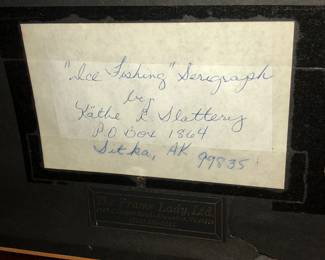 "Ice Fishing" Serigraph
by
Käthe R Slattery
P.O. Box 1864
Sitka, AK 99835
The Frame Lady, Ltd.